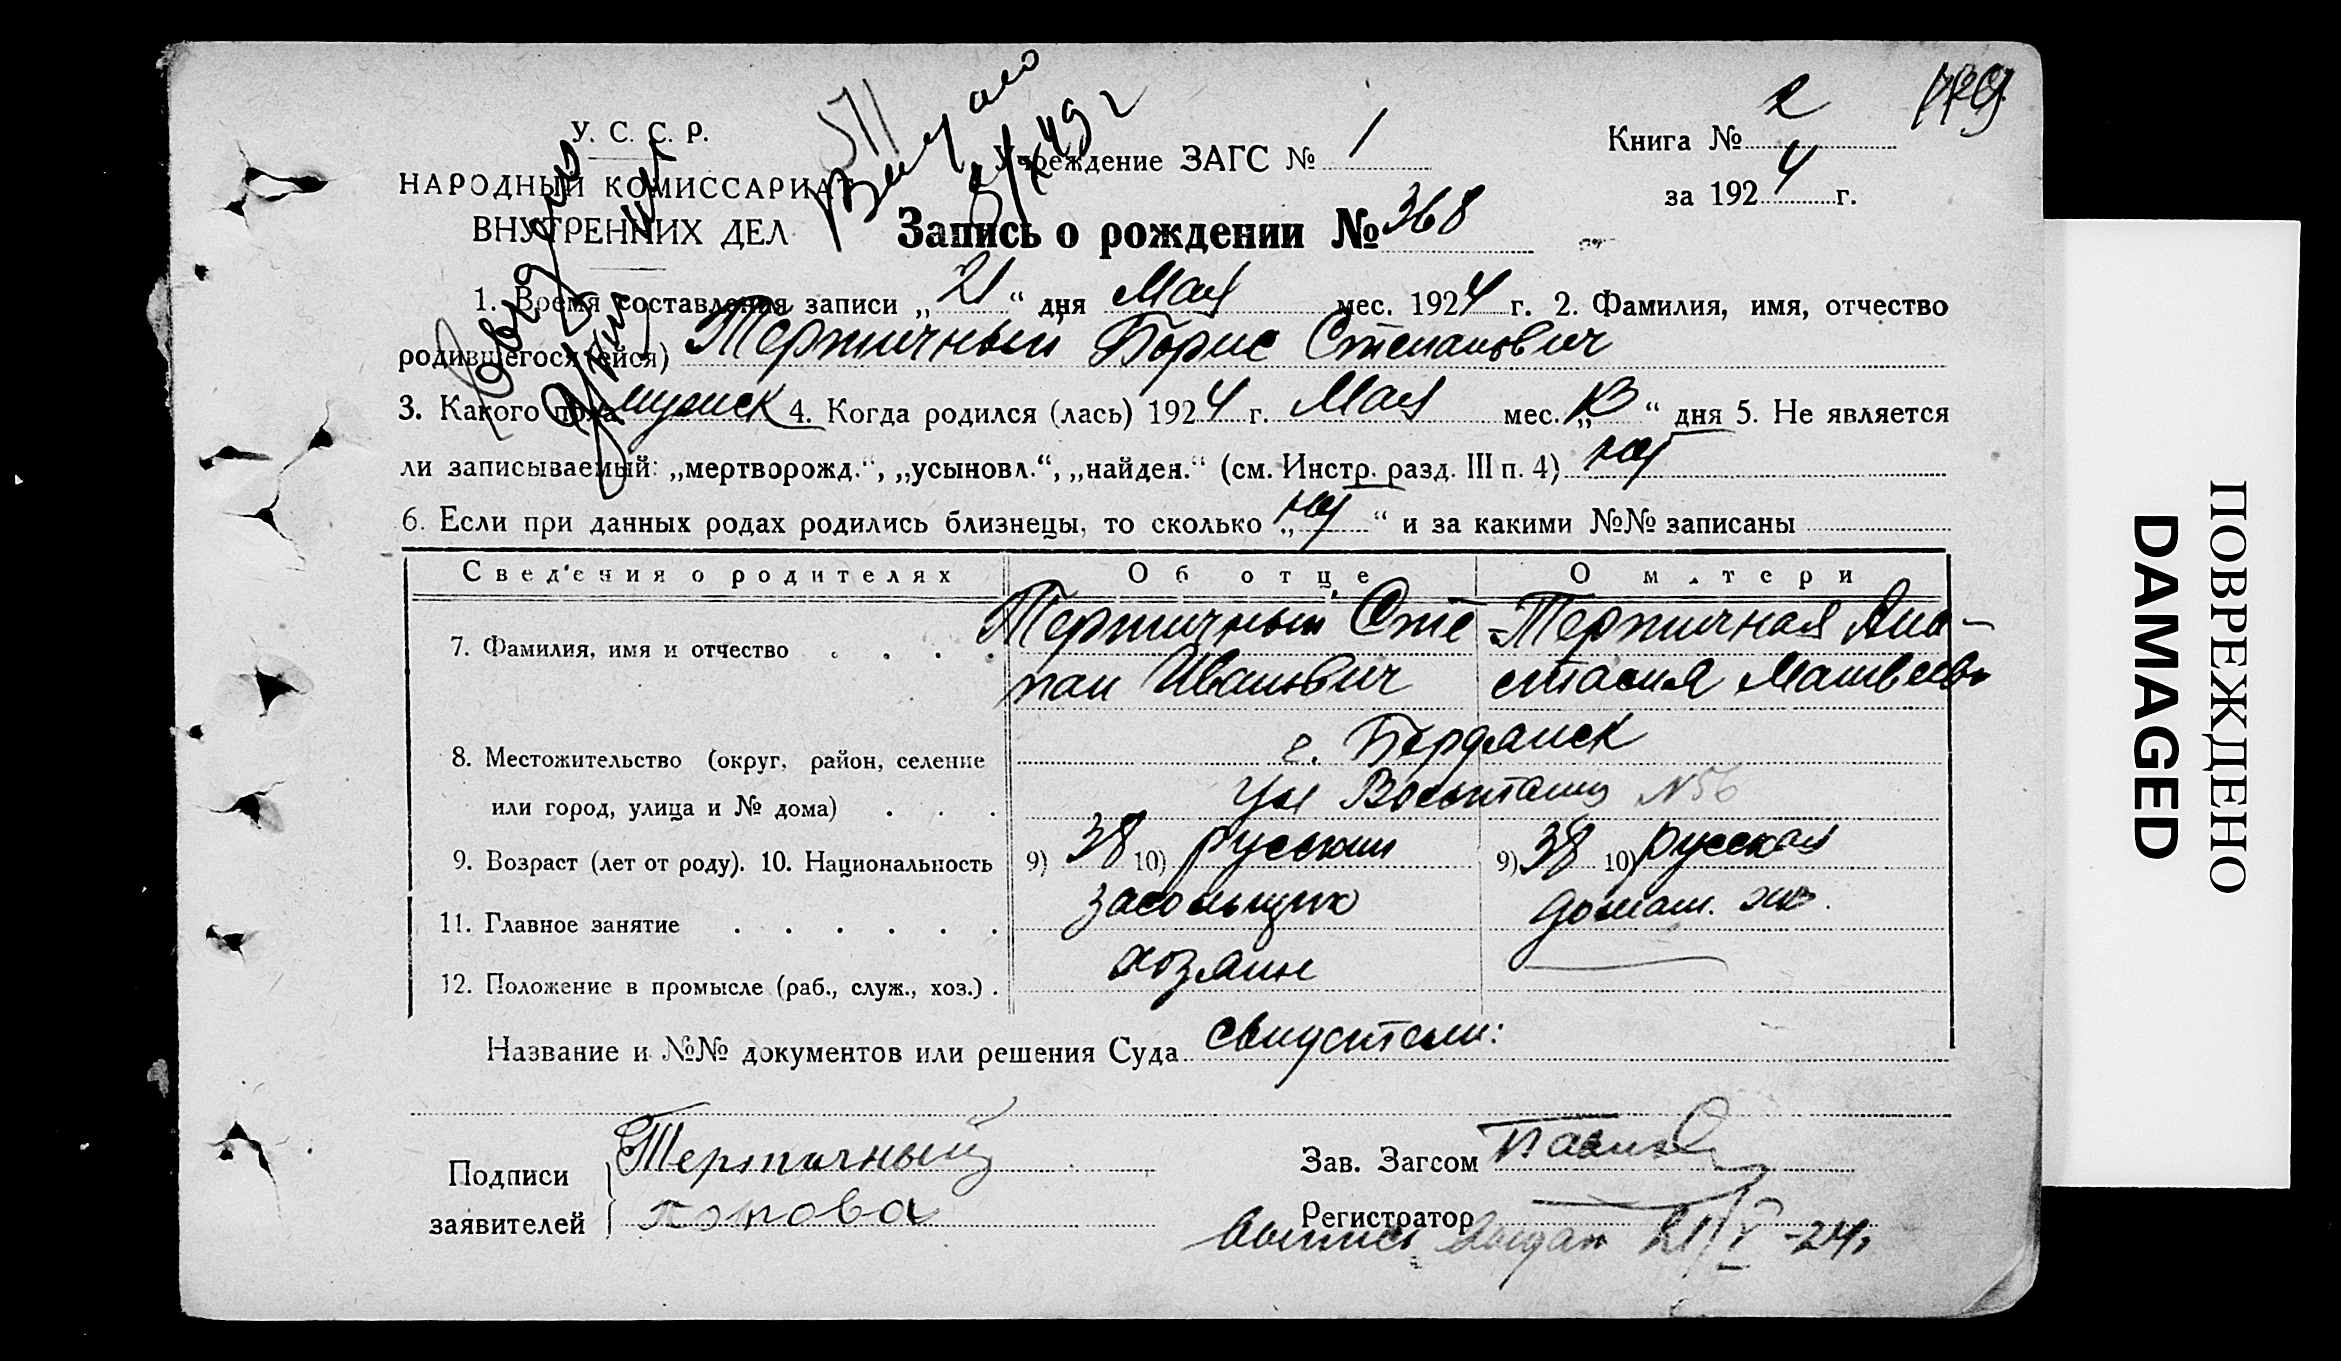 У. С. С. Р.
НАРОДНЫЙ КОМИССАРИАТ
ВНУТРЕННИХ ДЕЛ
571
Учреждение ЗАГС № 1
Книга № 2
за 1924 г.
Запись о рождении № 368
1. Время составления записи „21“ дня Мая мес. 1924 г. 2. Фамилия, имя, отчество
родившегося (ейся) Терпичный Борис Степанович
3. Какого пола мужск 4. Когда родился (лась) 1924 г. Мая мес. „ “ дня 5. Не является
ли записываемый: „мертворожд.“, „усыновл.“, „найден.“ (см. Инстр. разд. III п. 4)
6. Если при данных родах родились близнецы, то сколько „ “ и за какими №№ записаны
Сведения о родителях Об отце О матери
7. Фамилия, имя и отчество . . . . Терпичный Сте Терпичная Ана-
пан Иванович стасия Матвеевн
8. Местожительство (округ, район, селение г. Бердянск
или город, улица и № дома) . . . ул №56
9. Возраст (лет от роду). 10. Национальность 9) 38 10) русский 9) 38 10) русская
11. Главное занятие . . . . . . засольщик домаш. хоз.
12. Положение в промысле (раб., служ., хоз.) . хозяин
Название и №№ документов или решения Суда свидетели:
Подписи Терпичный
заявителей Попова
Зав. Загсом
Регистратор
выпись выдан 21/V-24.
ПОВРЕЖДЕНО
DAMAGED